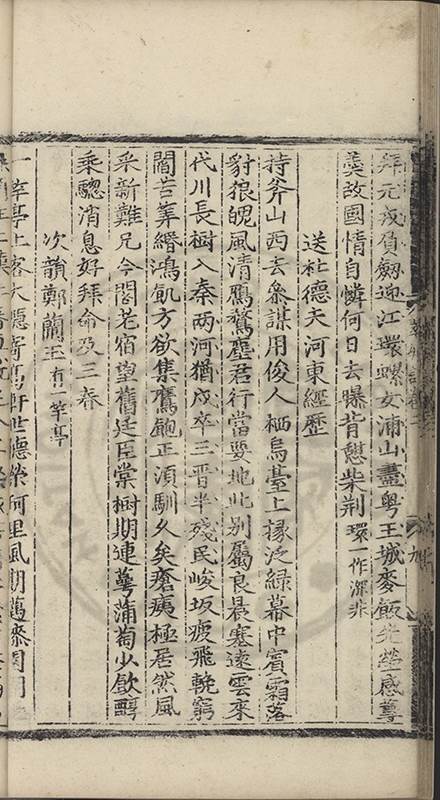 拜元戎負劔迎江環螺女浦山畫粤王城麥飯先塋感蓴
羹故國情自憐何日去曝背慰柴荆環一作深非
送杜德夫河東經歷
持斧山西去叅謀用俊人栖烏臺上掾泛緑幕中賓霜落
豺狼魄風清鴈鶩塵君行當要地此别屬良晨塞遠雲來
代川長樹入秦兩河猶戍卒三晉半殘民峻坂疲飛輓窮
閻苦筭緡鴻飢方欲集鷹飽正須馴久矣瘡痍極居然風
采新難兄今閣老宿望舊廷臣棠樹期連蕚蒲萄少飲醇
乘驄消息好拜命及三春
次韻鄭蘭玉有一竿亭
一竿亭上客大隱寄髙軒世德榮何里風期